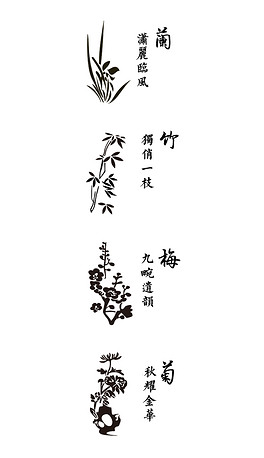 蘭
瀟麗臨風
竹
獨俏一枝
梅
九畹遺韻
菊
秋耀金華